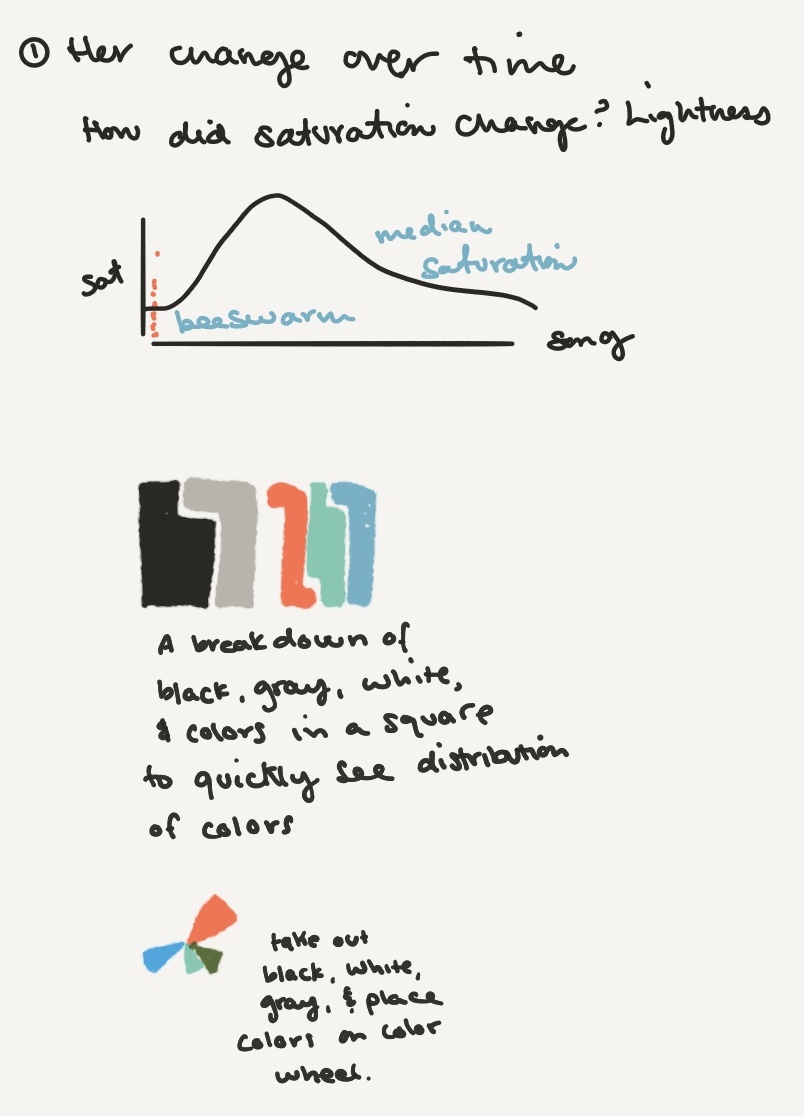 ① Her change over time
How did saturation change? Lightness
median
saturation
sat
beeswarm
song
A breakdown of
black, gray, white,
& colors in a square
to quickly see distribution
of colors
take out
black, white,
gray, & place
colors on color
wheel.